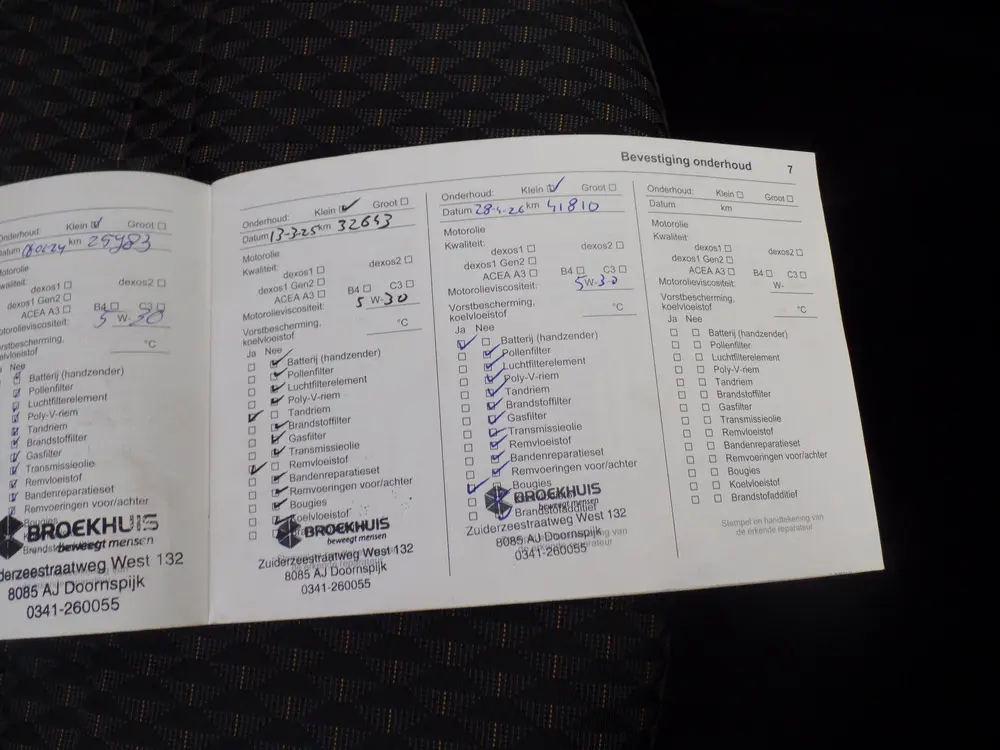 Bevestiging onderhoud 7
Onderhoud: Klein Groot
Datum km 25983
Motorolie
Kwaliteit:
dexos1
dexos1 Gen2
ACEA A3 B4 C3
Motorolieviscositeit: 5 W-30
Vorstbescherming,
koelvloeistof °C
Nee
Batterij (handzender)
Pollenfilter
Luchtfilterelement
Poly-V-riem
Tandriem
Brandstoffilter
Gasfilter
Transmissieolie
Remvloeistof
Bandenreparatieset
Remvoeringen voor/achter
Bougies
BROEKHUIS
beweegt mensen
Zuiderzeestraatweg West 132
8085 AJ Doornspijk
0341-260055
Onderhoud: Klein Groot
Datum 13-3-25 km 32653
Motorolie
Kwaliteit:
dexos1 dexos2
dexos1 Gen2
ACEA A3 B4 C3
Motorolieviscositeit: 5 W-30
Vorstbescherming,
koelvloeistof °C
Ja Nee
Batterij (handzender)
Pollenfilter
Luchtfilterelement
Poly-V-riem
Tandriem
Brandstoffilter
Gasfilter
Transmissieolie
Remvloeistof
Bandenreparatieset
Remvoeringen voor/achter
Bougies
Koelvloeistof
BROEKHUIS
beweegt mensen
Zuiderzeestraatweg West 132
8085 AJ Doornspijk
0341-260055
Onderhoud: Klein Groot
Datum 28-4-26 km 41810
Motorolie
Kwaliteit:
dexos1 dexos2
dexos1 Gen2
ACEA A3 B4 C3
Motorolieviscositeit: 5 W-30
Vorstbescherming,
koelvloeistof °C
Ja Nee
Batterij (handzender)
Pollenfilter
Luchtfilterelement
Poly-V-riem
Tandriem
Brandstoffilter
Gasfilter
Transmissieolie
Remvloeistof
Bandenreparatieset
Remvoeringen voor/achter
Bougies
Brandstofadditief
BROEKHUIS
beweegt mensen
Zuiderzeestraatweg West 132
8085 AJ Doornspijk
de erkende reparateur
0341-260055
Onderhoud: Klein Groot
Datum km
Motorolie
Kwaliteit:
dexos1 dexos2
dexos1 Gen2
ACEA A3 B4 C3
Motorolieviscositeit: W-
Vorstbescherming,
koelvloeistof °C
Ja Nee
Batterij (handzender)
Pollenfilter
Luchtfilterelement
Poly-V-riem
Tandriem
Brandstoffilter
Gasfilter
Transmissieolie
Remvloeistof
Bandenreparatieset
Remvoeringen voor/achter
Bougies
Koelvloeistof
Brandstofadditief
Stempel en handtekening van
de erkende reparateur